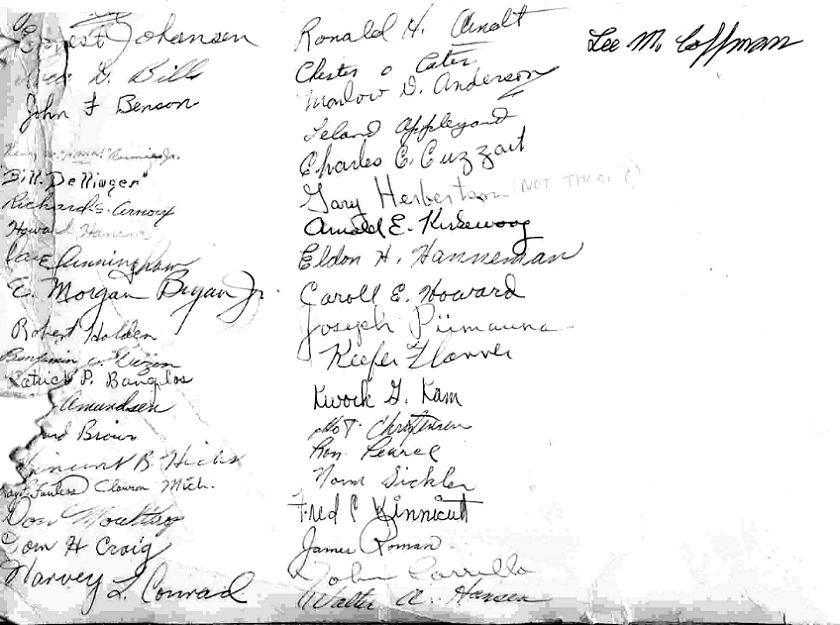 Johansen
G. Bills
John F Benson
"Bill Dellinger"
Richard S. Arnoux
Howard
Dave Cunningham
E. Morgan Bryan Jr.
Robert Holden
Benjamin
Patrick P. Bangalos
Amundsen
Brown
Vincent B. Hicks
Clawson Mich.
Don Moultrop
Tom H Craig
Harvey L. Conrad
Ronald H. Arnolt
Chester O Cater
Marlow D. Anderson
Leland Appleyard
Charles C. Cuzzart
Gary Herbertson (NOT THERE?)
Arnold E.
Eldon H. Hanneman
Caroll E. Howard
Joseph Piimauna
Keefer Flanner
Kwock G. Kam
Christensen
Ron Pearce
Norm Sickler
Fred C Kinnicutt
James Roman
John Carrillo
Walter A. Hansen
Lee M. Coffman